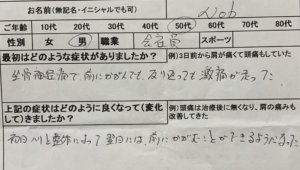 お名前(無記名・イニシャルでも可)
ご年齢 10代 20代 30代 40代 50代 60代 70代 80代
性別 女 男 職業 会社員 スポーツ
最初はどのような症状がありましたか? 例)3日前から肩が痛くて頭痛もしていた
坐骨神経痛で、前にかがんでも、反り返っても激痛が走った
上記の症状はどのように良くなって(変化して)きましたか? 例)頭痛は治療後に無くなり、肩の痛みも改善してきた
初日ハリと整体によって翌日には、前にかがむことができるようになった